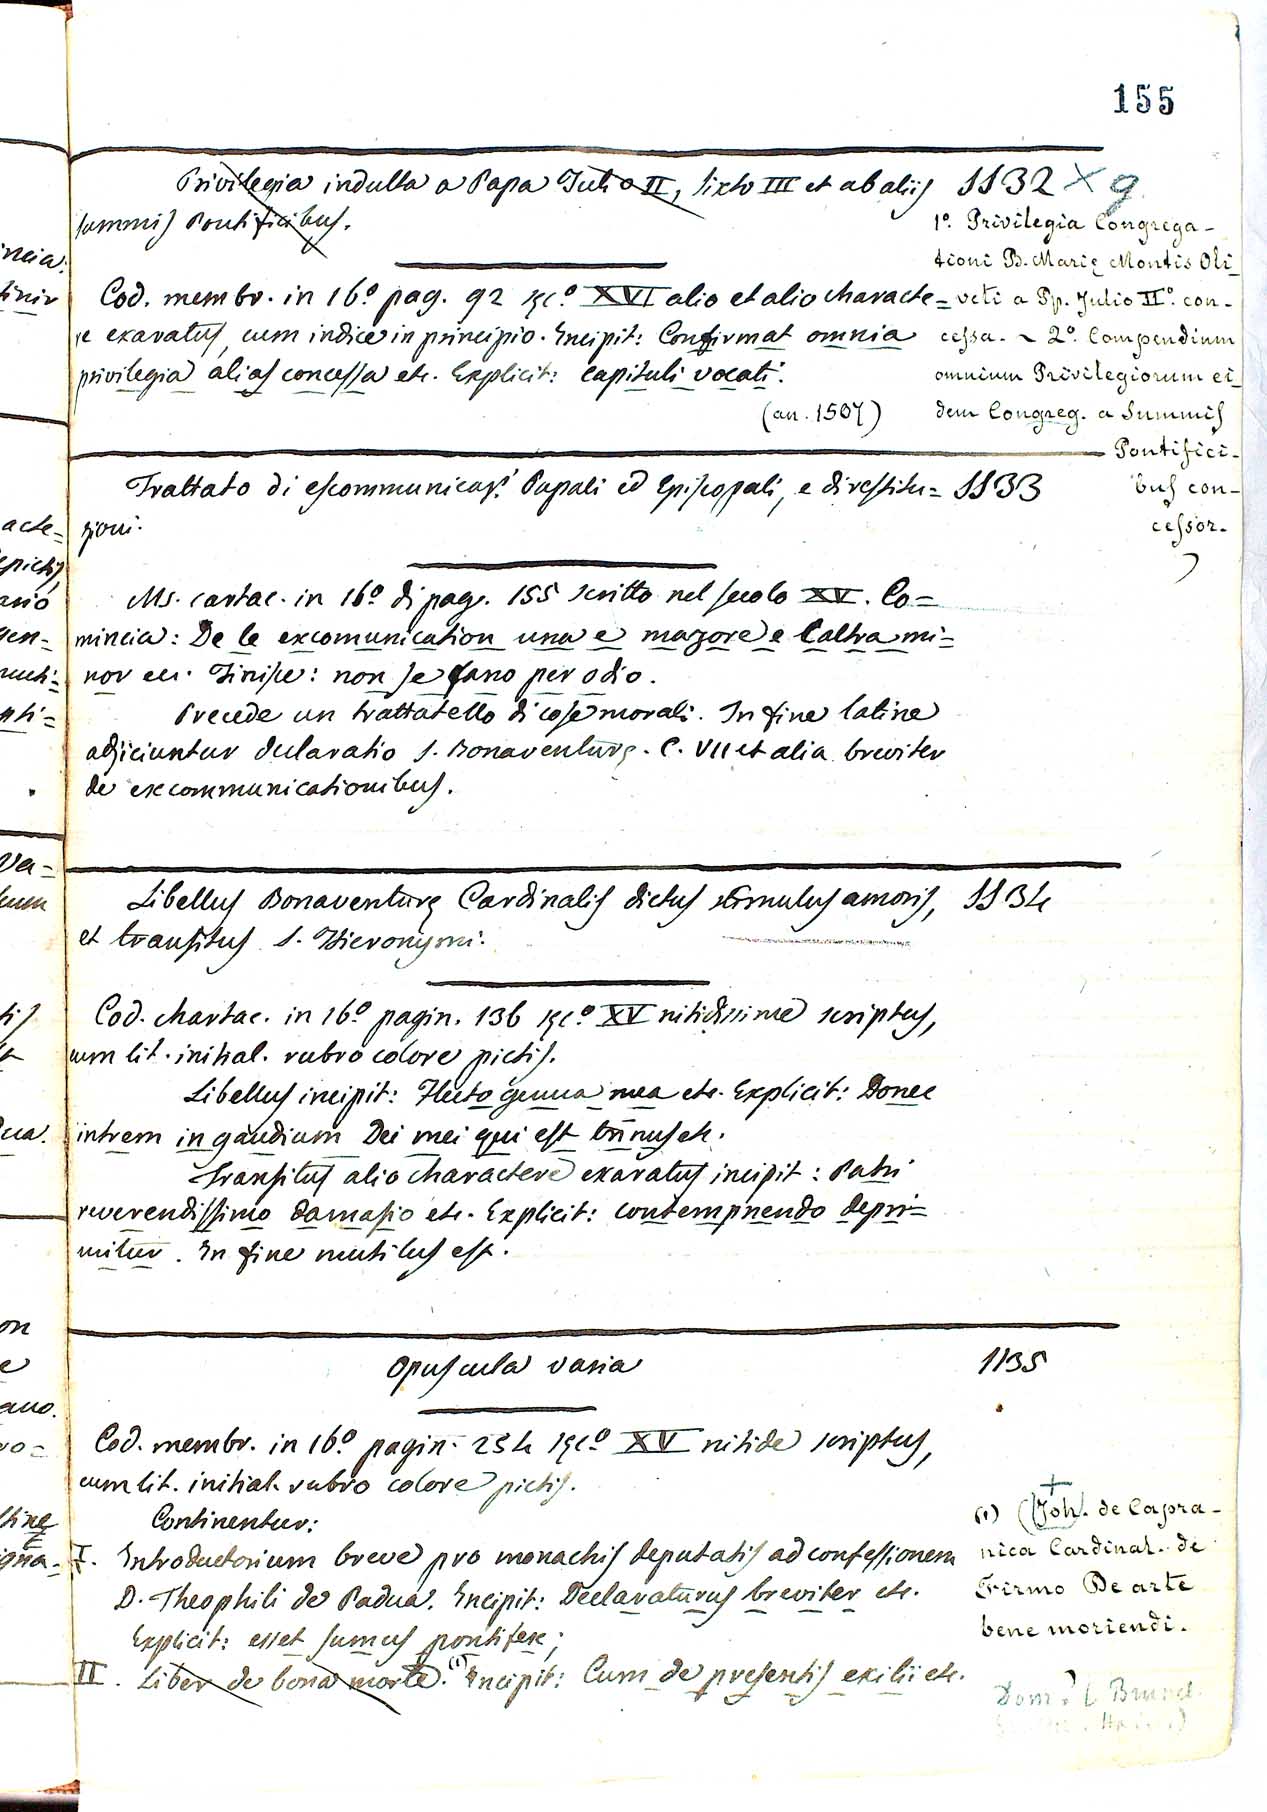 155
Privilegia indulta a Papa Julio II, Sixto III et ab aliis 1132 X g
summis Pontificibus.
Cod. membr. in 16º pag. 92 sęc.º XVI alio et alio characte=
re exaratus, cum indice in principio. Incipit: Confirmat omnia
privilegia alias concessa etc. Explicit: capituli vocati.
(an. 1507)
1º. Privilegia Congrega-
tioni B. Marię Montis Oli-
veti a Pp. Julio IIº. con-
cessa. ~ 2º. Compendium
omnium Privilegiorum ei-
dem Congreg. a Summis
Pontifici-
bus con-
cessor.
Trattato di escommunicaz.i Papali ed Episcopali, e di restitu= 1133
zioni.
Ms. cartac. in 16º di pag. 155 scritto nel secolo XV. Co=
mincia: De le excomunication una e mazore e l'altra mi=
nor ec. Finisce: non se fano per odio.
Precede un trattatello di cose morali. In fine latine
adjiciuntur declaratio S. Bonaventurę. C. VII et alia breviter
de excommunicationibus.
Libellus Bonaventurę Cardinalis dictus stimulus amoris, 1134
et transitus S. Hieronymi.
Cod. chartac. in 16º pagin. 136 sęc.º XV nitidissime scriptus,
cum lit. initial. rubro colore pictis.
Libellus incipit: Flecto genua mea etc. Explicit: Donec
intrem in gaudium Dei mei qui est trinus etc.
Transitus alio charactere exaratus incipit: Patri
reverendissimo damasio etc. Explicit: contempnendo depri=
mitur. In fine mutilus est.
Opuscula varia 1135
Cod. membr. in 16º pagin. 254 sęc.º XV nitide scriptus,
cum lit. initial. rubro colore pictis.
Continentur:
I. Introductorium breve pro monachis deputatis ad confessionem
D. Theophili de Padua. Incipit: Declaraturus breviter etc.
Explicit: esset sumus pontifex;
II. Liber de bona morte. (1) Incipit: Cum de presentis exilii etc.
(1) (Joh. de Capra-
nica Cardinal. de
Firmo De arte
bene moriendi.